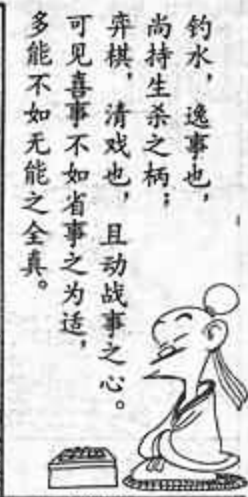 钓水，逸事也，
尚持生杀之柄；
弈棋，清戏也，且动战事之心。
可见喜事不如省事之为适，
多能不如无能之全真。